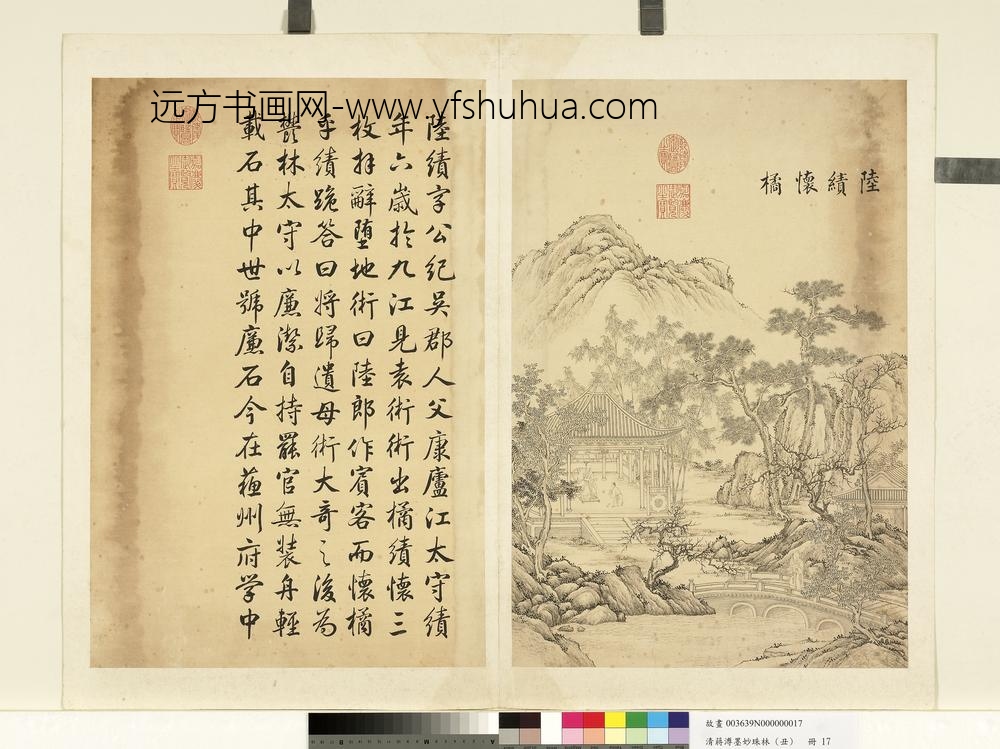 远方书画网-www.yfshuhua.com
陸績懷橘
陸績字公紀吳郡人父康廬江太守績
年六歲於九江見袁術術出橘績懷三
枚拜辭墮地術曰陸郎作賓客而懷橘
乎績跪答曰將歸遺母術大奇之後為
鬱林太守以廉潔自持罷官無裝舟輕
載石其中世號廉石今在蘓州府学中
故畫 003639N000000017
清蔣溥墨妙珠林(丑) 冊 17